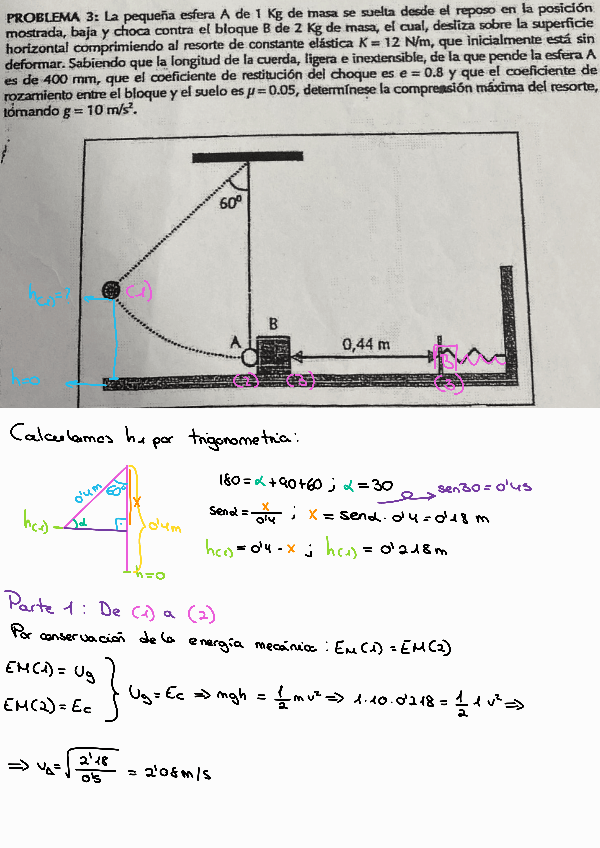 PROBLEMA 3: La pequeña esfera A de 1 Kg de masa se suelta desde el reposo en la posición
mostrada, baja y choca contra el bloque B de 2 Kg de masa, el cual, desliza sobre la superficie
horizontal comprimiendo al resorte de constante elástica K = 12 N/m, que inicialmente está sin
deformar. Sabiendo que la longitud de la cuerda, ligera e inextensible, de la que pende la esfera A
es de 400 mm, que el coeficiente de restitución del choque es e = 0.8 y que el coeficiente de
rozamiento entre el bloque y el suelo es μ = 0.05, determínese la compresión máxima del resorte,
tomando g = 10 m/s².
60º
h(1)=?
(1)
A
B
0,44 m
h=0
(2)
(3)
Calculamos h1 por trigonometria:
0'4m
60º
x
α
0'4m
h(1)
h=0
180 = α + 90 + 60 ; α = 30
sen30 = 0'45
senα = x/0'4 ; x = senα · 0'4 = 0'18 m
h(1) = 0'4 - x ; h(1) = 0'218 m
Parte 1: De (1) a (2)
Por conservación de la energía mecánica: EM(1) = EM(2)
EM(1) = Ug
EM(2) = Ec
Ug = Ec ⇒ mgh = 1/2 mv² ⇒ 1·10·0'218 = 1/2 1 v² ⇒
⇒ vA = √(2'18/0'5) = 2'08 m/s